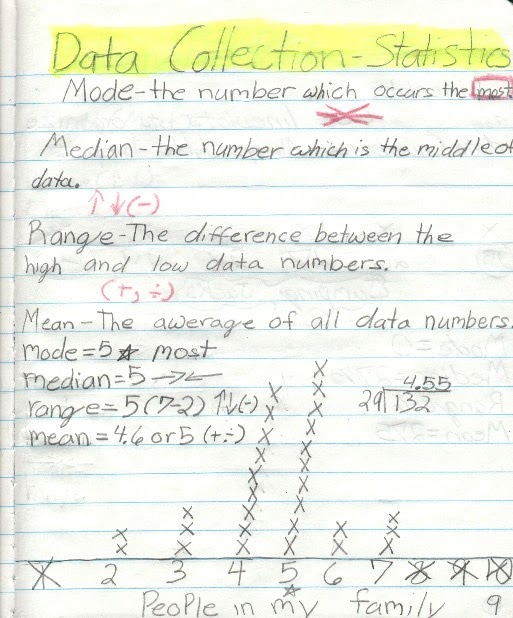 Data Collection-Statistics
Mode-the number which occurs the most.
Median-the number which is the middle of
data.
↑↓(-)
Range-The difference between the
high and low data numbers.
(+, ÷)
Mean-The awerage of all data numbers.
mode=5 ☆ most
median=5 →←
range=5(7-2) ↑↓(-)
mean=4.6 or 5 (+÷)
4.55
29)132
X 2 3 4 5 6 7 8 9 10
☆
People in my family 9